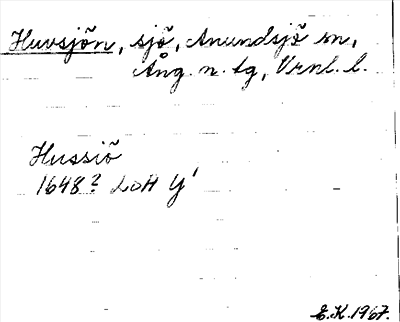 Huvsjön, sjö, Anundsjö sn,
Ång. n. tg, Vrnl. l.
Hussiö
1648? LoH Y'
E.K. 1967.